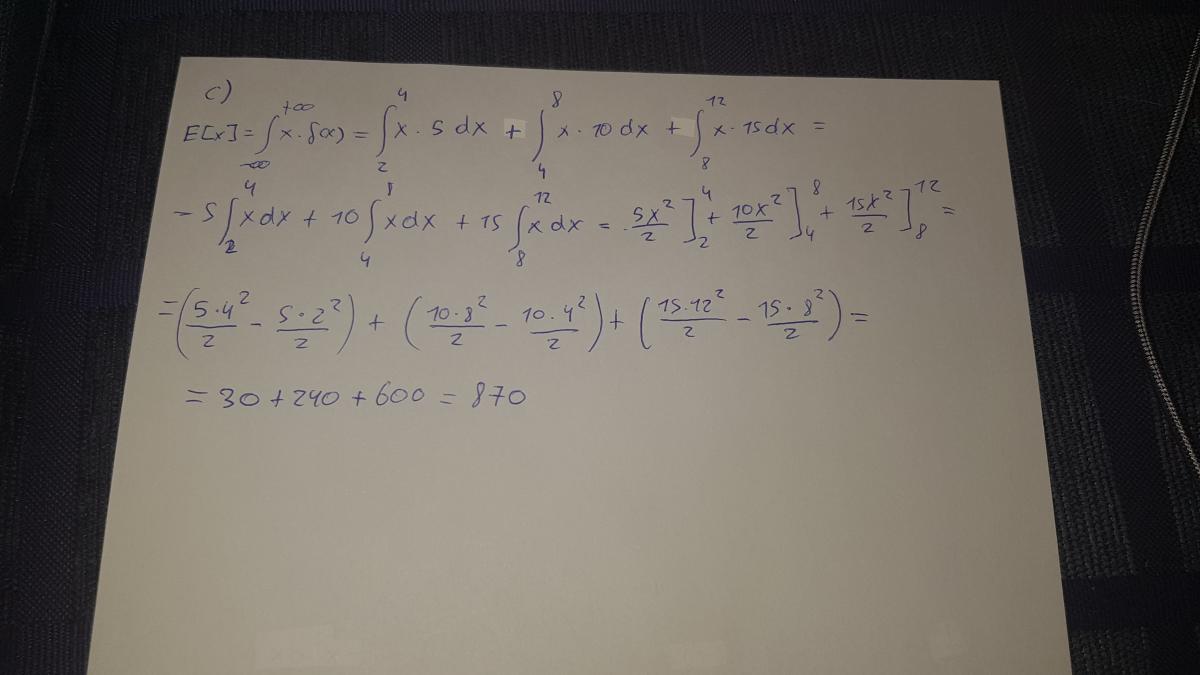 c)
E[x] = ∫_{-∞}^{+∞} x · f(x) = ∫_2^4 x · 5 dx + ∫_4^8 x · 10 dx + ∫_8^{12} x · 15 dx =
- 5 ∫_2^4 x dx + 10 ∫_4^8 x dx + 15 ∫_8^{12} x dx = 5x²/2 ]_2^4 + 10x²/2 ]_4^8 + 15x²/2 ]_8^{12} =
= (5·4²/2 - 5·2²/2) + (10·8²/2 - 10·4²/2) + (15·12²/2 - 15·8²/2) =
= 30 + 240 + 600 = 870